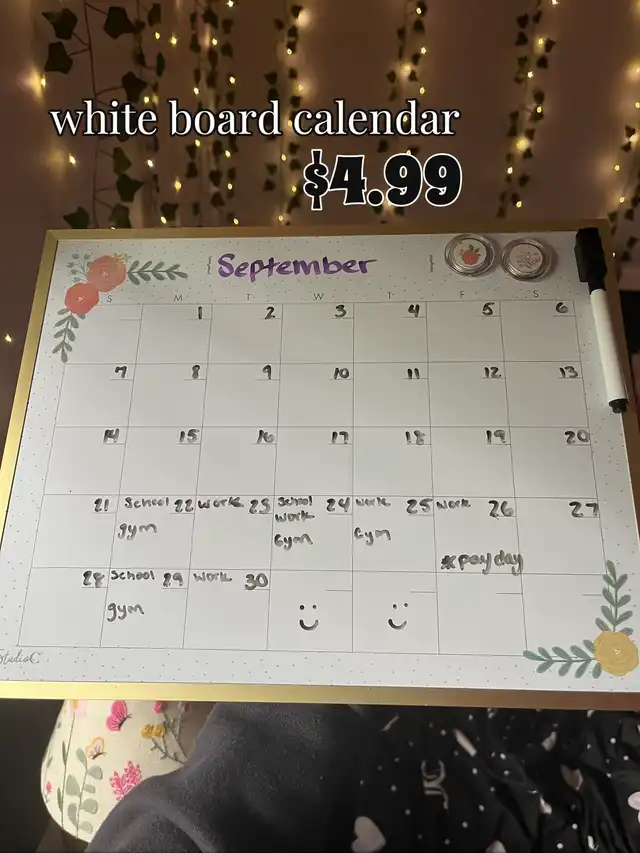 white board calendar
$4.99
September
S M T W T F S
1 2 3 4 5 6
7 8 9 10 11 12 13
14 15 16 17 18 19 20
21 School 22 work 23 School 24 work 25 work 26 27
work
gym Gym Gym
*payday
28 School 29 work 30
gym
studio C.